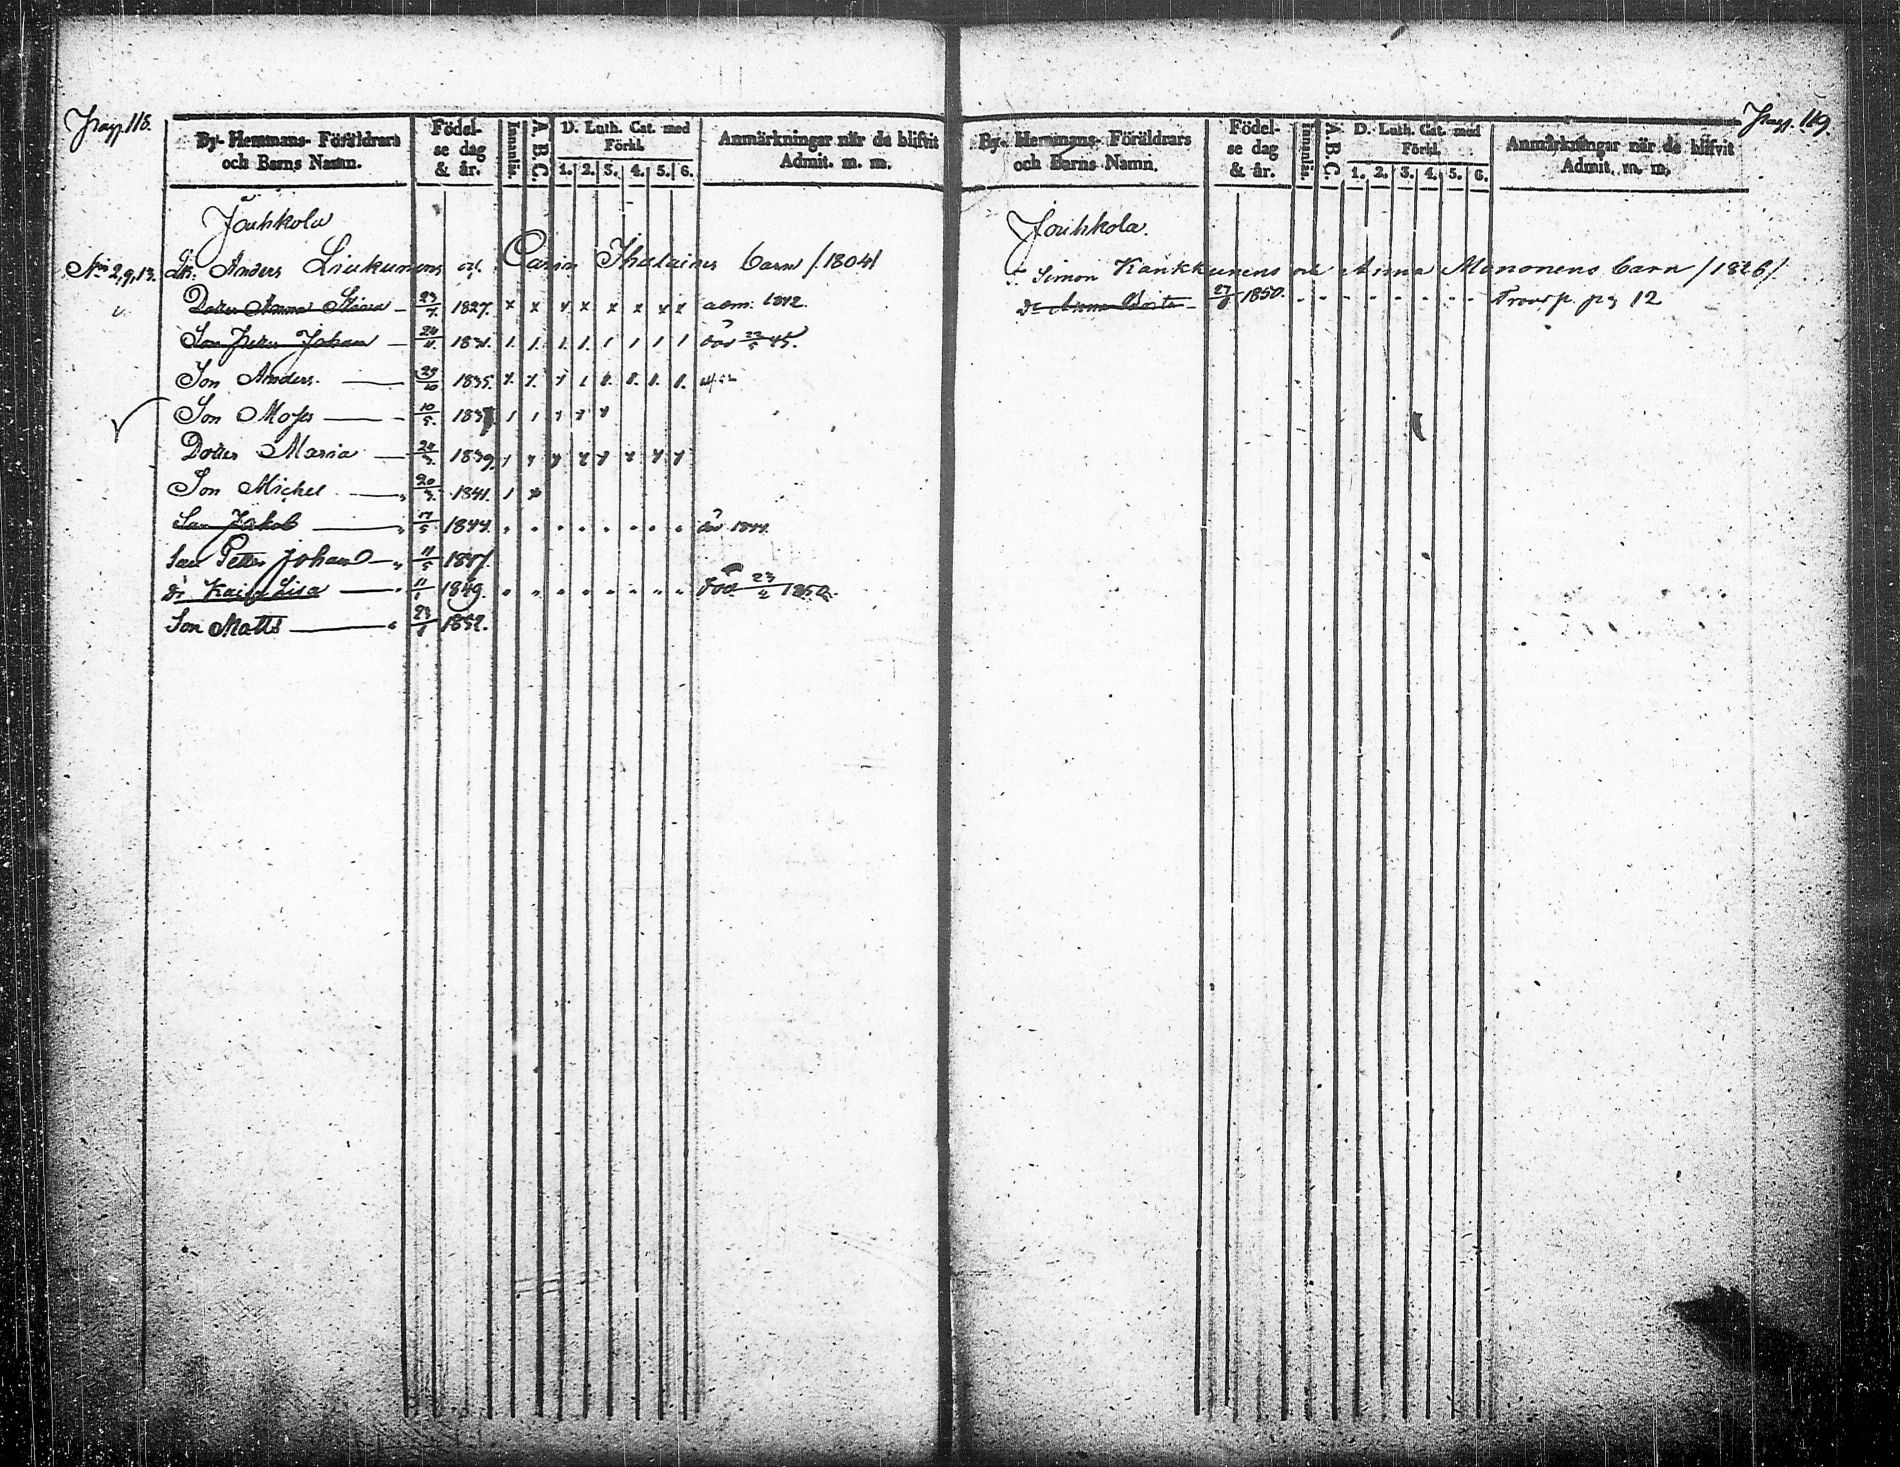 Pag. 118.
By- Hemmans- Föräldrars och Barns Namn.
Födel-se dag & år.
Innanläs.
A. B. C.
D. Luth. Cat. med Förkl.
1. 2. 3. 4. 5. 6.
Anmärkningar när de blifvit Admit. m. m.
Jouhkola
No 2,9,13. Anders Liukunens och Carin Ihalaines barn /1804/
Dotter Anna 23/7 1827. x x x x x x x x adm. 1842.
Son Petter Johan 24/11 1831. 1 1. 1. 1. 1 1 1 1 död 22/5 45.
Son Anders 29/10 1835.
Son Moses 10/5. 183
Dotter Maria 1839.
Son Michel 20/3. 1841. 1 x
Son Jakob 17/5 1844. död 1844.
Son Petter Johan 11/5 1847.
Kaisa Lisa 11/1 1849. död 23/2 1850.
Son Matts 23/1 1852.
Pag. 119.
By- Hemmans- Föräldrars och Barns Namn.
Födel-se dag & år.
Innanläs.
A. B. C.
D. Luth. Cat. med Förkl.
1. 2. 3. 4. 5. 6.
Anmärkningar när de blifvit Admit. m. m.
Jouhkola.
Simon Kankkunens och Anna Mononens barn /1826/
Anna 1850. Transp. pag 12